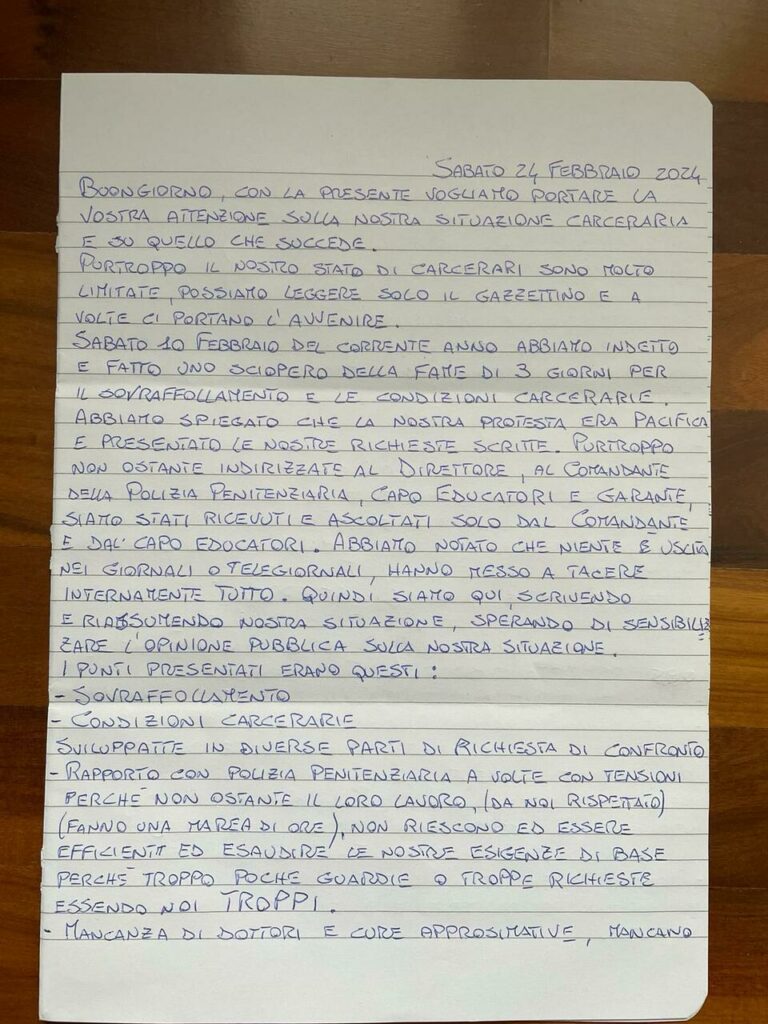 SABATO 24 FEBBRAIO 2024
BUONGIORNO, CON LA PRESENTE VOGLIAMO PORTARE LA
VOSTRA ATTENZIONE SULLA NOSTRA SITUAZIONE CARCERARIA
E SU QUELLO CHE SUCCEDE.
PURTROPPO IL NOSTRO STATO DI CARCERARI SONO MOLTO
LIMITATE, POSSIAMO LEGGERE SOLO IL GAZZETTINO E A
VOLTE CI PORTANO L'AVVENIRE.
SABATO 10 FEBBRAIO DEL CORRENTE ANNO ABBIAMO INDETTO
E FATTO UNO SCIOPERO DELLA FAME DI 3 GIORNI PER
IL SOVRAFFOLLAMENTO E LE CONDIZIONI CARCERARIE.
ABBIAMO SPIEGATO CHE LA NOSTRA PROTESTA ERA PACIFICA
E PRESENTATO LE NOSTRE RICHIESTE SCRITTE. PURTROPPO
NON OSTANTE INDIRIZZATE AL DIRETTORE, AL COMANDANTE
DELLA POLIZIA PENITENZIARIA, CAPO EDUCATORI E GARANTE,
SIAMO STATI RICEVUTI E ASCOLTATI SOLO DAL COMANDANTE
E DAL' CAPO EDUCATORI. ABBIAMO NOTATO CHE NIENTE È USCITA
NEI GIORNALI O TELEGIORNALI, HANNO MESSO A TACERE
INTERNAMENTE TUTTO. QUINDI SIAMO QUI, SCRIVENDO
E RIASSUMENDO NOSTRA SITUAZIONE, SPERANDO DI SENSIBILIZ
ZARE L'OPINIONE PUBBLICA SULLA NOSTRA SITUAZIONE.
I PUNTI PRESENTATI ERANO QUESTI:
- SOVRAFFOLLAMENTO
- CONDIZIONI CARCERARIE
SVILUPPATTE IN DIVERSE PARTI DI RICHIESTA DI CONFRONTO
- RAPPORTO CON POLIZIA PENITENZIARIA A VOLTE CON TENSIONI
PERCHÉ NON OSTANTE IL LORO LAVORO, (DA NOI RISPETTATO)
(FANNO UNA MAREA DI ORE), NON RIESCONO ED ESSERE
EFFICIENTI ED ESAUDIRE LE NOSTRE ESIGENZE DI BASE
PERCHÉ TROPPO POCHE GUARDIE O TROPPE RICHIESTE
ESSENDO NOI TROPPI.
- MANCANZA DI DOTTORI E CURE APPROSIMATIVE, MANCANO